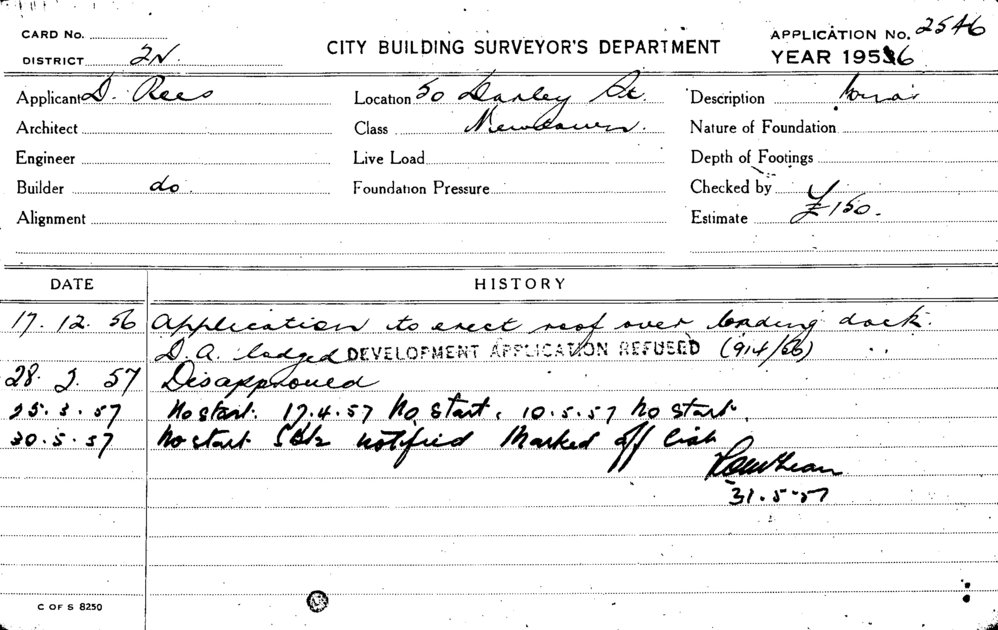 CARD No.
CITY BUILDING SURVEYOR'S DEPARTMENT
APPLICATION No. 2546
DISTRICT 2N.
YEAR 1956
Applicant D. Rees
Location 50 Darley St.
Description
Architect
Class Newtown.
Nature of Foundation
Engineer
Live Load
Depth of Footings
Builder do.
Foundation Pressure
Checked by
Alignment
Estimate £150.
DATE
HISTORY
17. 12. 56 Application to erect roof over loading dock.
D. A. lodged DEVELOPMENT APPLICATION REFUSED (914/56)
28. 2. 57 Disapproved
25. 3. 57 No start. 17.4.57 No start. 10.5.57 No start.
30. 5. 57 No start notified Marked off
31. 5. 57
C OF S 8250